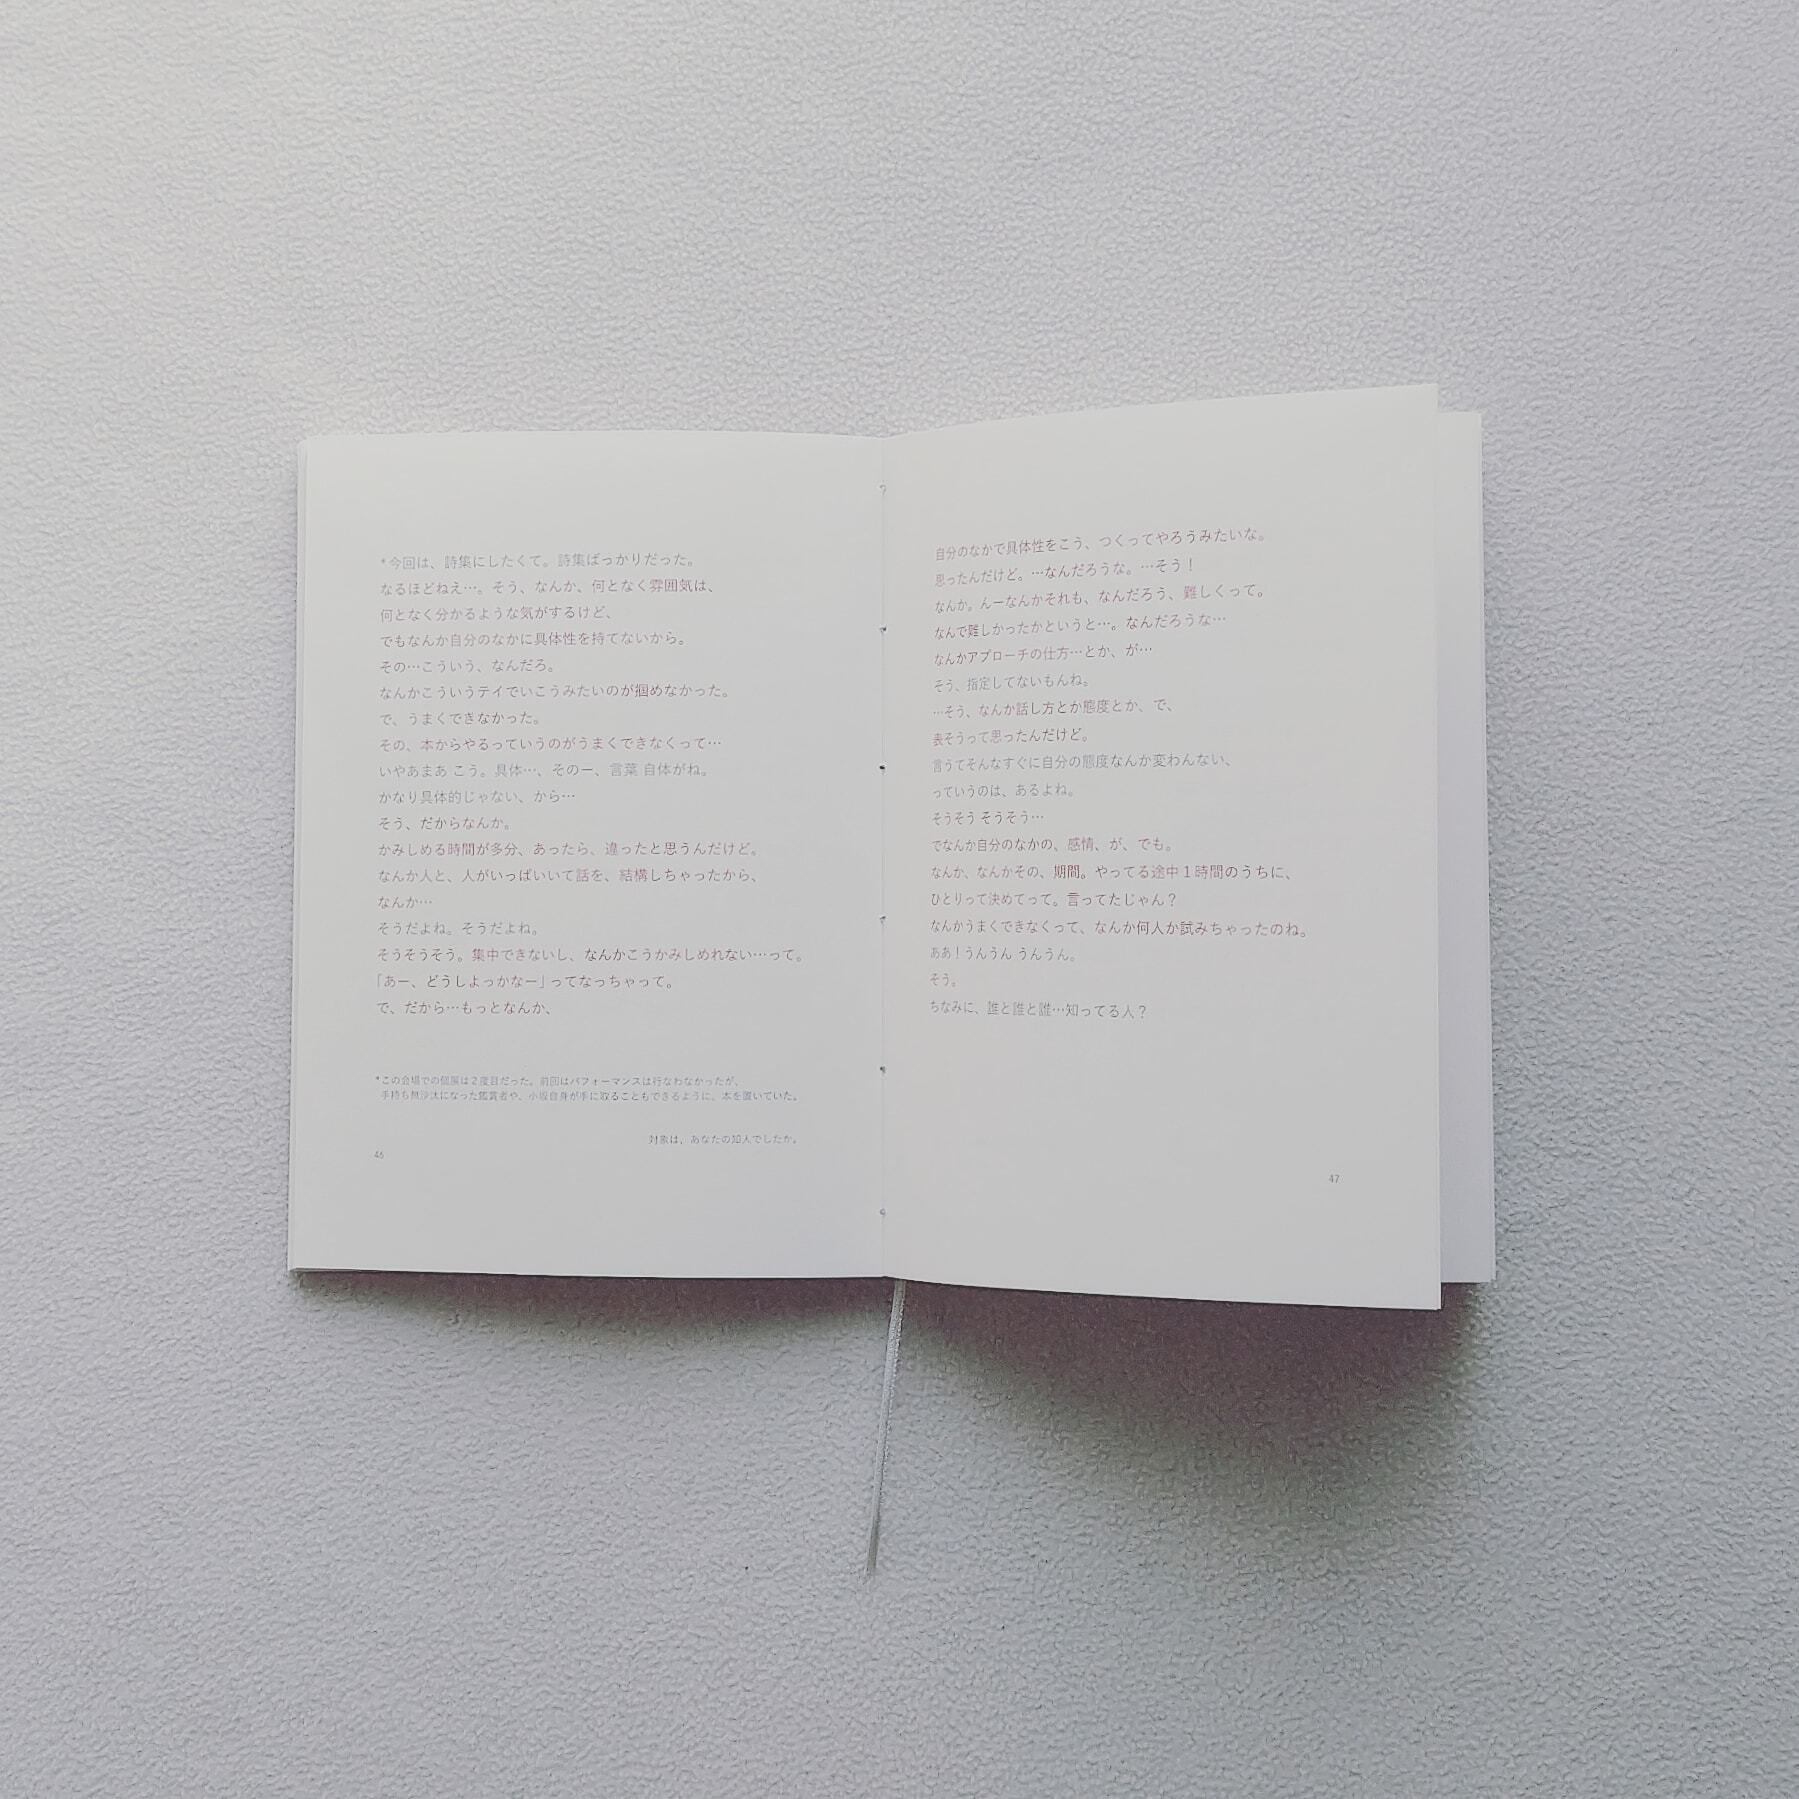 *今回は、詩集にしたくて。詩集ばっかりだった。
なるほどねえ…。そう、なんか、何となく雰囲気は、
何となく分かるような気がするけど、
でもなんか自分のなかに具体性を持てないから。
その…こういう、なんだろ。
なんかこういうテイでいこうみたいのが掴めなかった。
で、うまくできなかった。
その、本からやるっていうのがうまくできなくって…
いやあまあ こう。具体…、そのー、言葉 自体がね。
かなり具体的じゃない、から…
そう、だからなんか。
かみしめる時間が多分、あったら、違ったと思うんだけど。
なんか人と、人がいっぱいいて話を、結構しちゃったから、
なんか…
そうだよね。そうだよね。
そうそうそう。集中できないし、なんかこうかみしめれない…って。
「あー、どうしよっかなー」ってなっちゃって。
で、だから…もっとなんか、
*この会場での個展は2度目だった。前回はパフォーマンスは行なわなかったが、
手持ち無沙汰になった鑑賞者や、小坂自身が手に取ることもできるように、本を置いていた。
対象は、あなたの知人でしたか。
46
自分のなかで具体性をこう、つくってやろうみたいな。
思ったんだけど。…なんだろうな。…そう！
なんか。んーなんかそれも、なんだろう、難しくって。
なんで難しかったかというと…。なんだろうな…
なんかアプローチの仕方…とか、が…
そう、指定してないもんね。
…そう、なんか話し方とか態度とか、で、
表そうって思ったんだけど。
言うてそんなすぐに自分の態度なんか変わんない、
っていうのは、あるよね。
そうそう そうそう…
でなんか自分のなかの、感情、が、でも。
なんか、なんかその、期間。やってる途中1時間のうちに、
ひとりって決めてって。言ってたじゃん？
なんかうまくできなくって、なんか何人か試みちゃったのね。
ああ！うんうん うんうん。
そう。
ちなみに、誰と誰と誰…知ってる人？
47